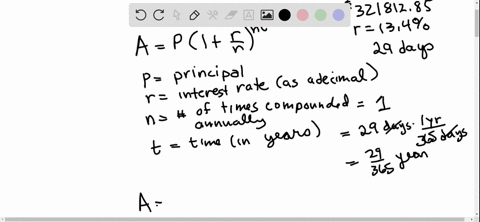 321812.85
A = P(1 + r/n)^nt
r = 13.4%
29 days
P = principal
r = interest rate (as a decimal)
n = # of times compounded annually = 1
t = time (in years) = 29 days · 1yr/365 days
= 29/365 year
A =